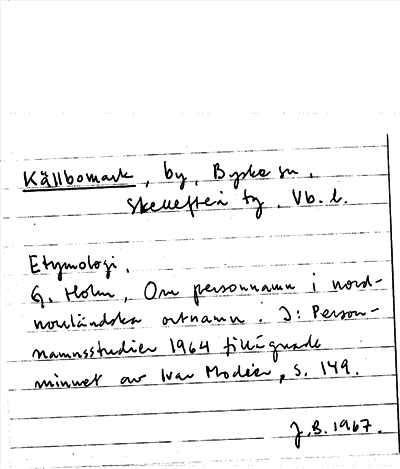 Källbomark, by, Byske sn,
Skellefteå tg, Vb. l.
Etymologi.
G. Holm, Om personnamn i nord-
nordländska ortnamn. I: Person-
namnsstudier 1964 tillägnade
minnet av Ivar Modéer, s. 149.
J.B. 1967.